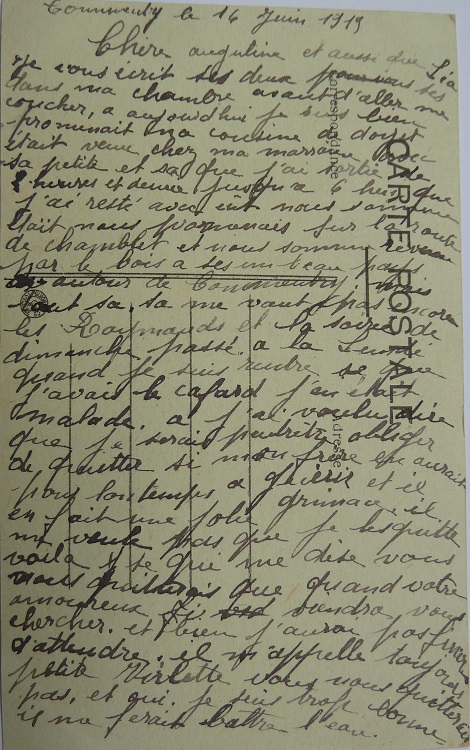 Commentry le 16 Juin 1919
Chere anguline et aussi die Léa
Je vous écrit ses deux ses
dans ma chambre avant d'aller me
coucher, a aujourdhui je suis bien
promenait ma cousine de doyet
était venue chez ma marraine avec
sa petite et sa que j'ai sortie de que
2 heures et demie jusqu'a 6 heures
j'ai resté avec nous somme
était nous promenais sur la route
de chamblet et nous sommes revenu
par le bois a ses un beau pays
autour de Commentry mais
tout sa, sa me vaut pas encore
les Raymauds et la soirée de
dimanche passé. a la Lundi
quand je suis rentre se que
j'avais le cafard j'en était
malade. a j'ai voulu dire
que je serai peutetre obliger
de quitter si mon frere en aurait
pour lontemps a guérir et il
en fait une jolie grimace, il
ne veule pas que je les quitte
voila se que me dise vous
nous quitterais que quand votre
amoureux vandra vous
chercher. et bien j'aurai pas finir
d'attendre. il m'appelle toujours
petite Virlette vous nous quitterai
pas, et oui je suis trop bonne
il me ferait battre l'eau.
CARTE POSTALE
Correspondance
Adresse